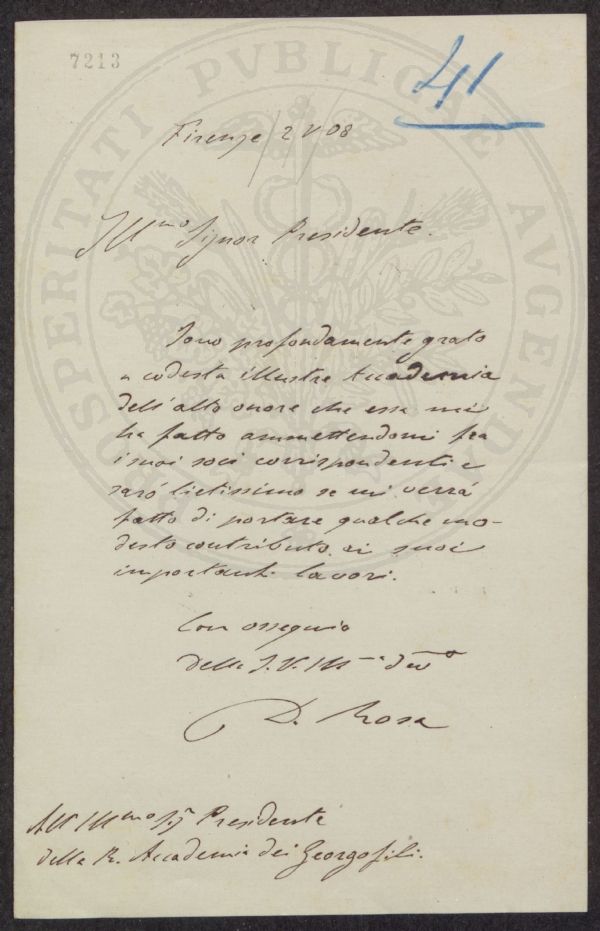 7213
41
Firenze 2 V 08
Ill.mo Signor Presidente.
Sono profondamente grato
a codesta illustre Accademia
dell'alto onore che essa mi
ha fatto ammettendomi fra
i suoi soci corrispondenti e
sarò lietissimo se mi verrà
fatto di portare qualche mo-
desto contributo ai suoi
importanti lavori.
Con ossequio
della S. V. Ill.ma dev.o
D. Rosa
All'Ill.mo Sig. Presidente
della R. Accademia dei Georgofili.
PROSPERITATI PVBLICAE AVGENDAE